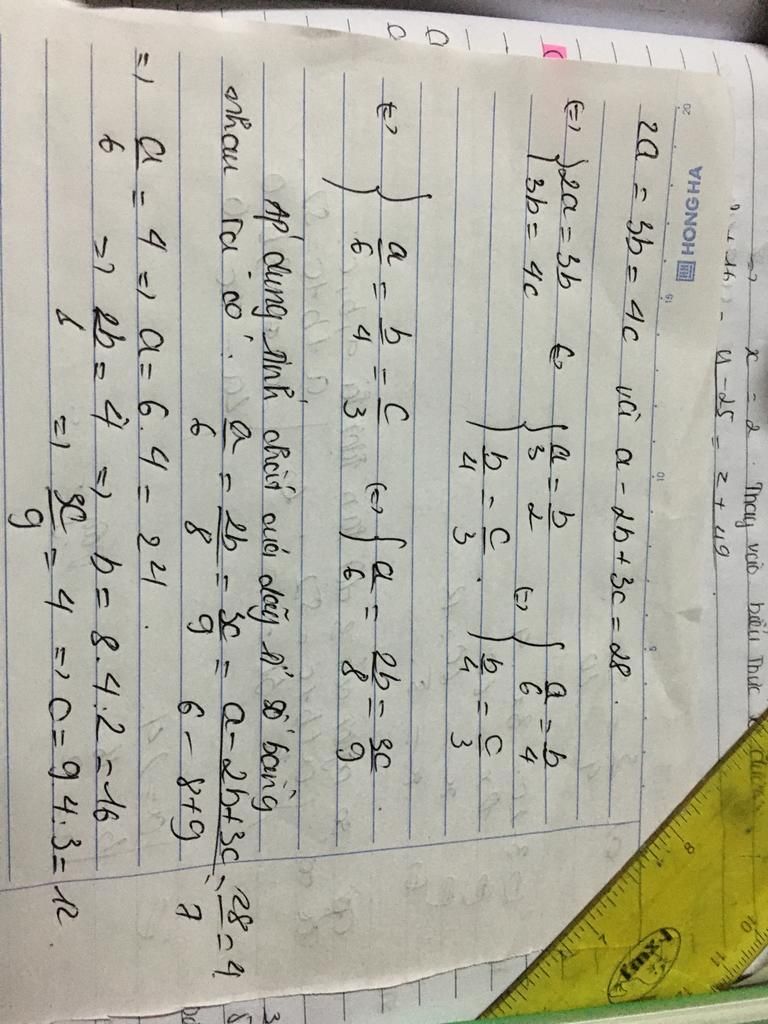 x = 2. Thay vào biểu thức
4-25 = z + 49
HONG HA
20 15 10
2a = 3b = 4c và a - 2b + 3c = 28.
(=) { 2a = 3b (=) { a/3 = b/2 (=) { a/6 = b/4
{ 3b = 4c { b/4 = c/3 . { b/4 = c/3
(=) { a/6 = b/4 = c/3 (=) { a/6 = 2b/8 = 3c/9 .
Áp dụng tính chất của dãy tỉ số bằng
nhau ta có : a/6 = 2b/8 = 3c/9 = a-2b+3c/6-8+9 = 28/7 = 4
=> a/6 = 4 => a = 6.4 = 24 .
=> 2b/8 = 4 => b = 8.4.2 = 16
=> 3c/9 = 4 => c = 9 4.3 = 12
8 7 10 11